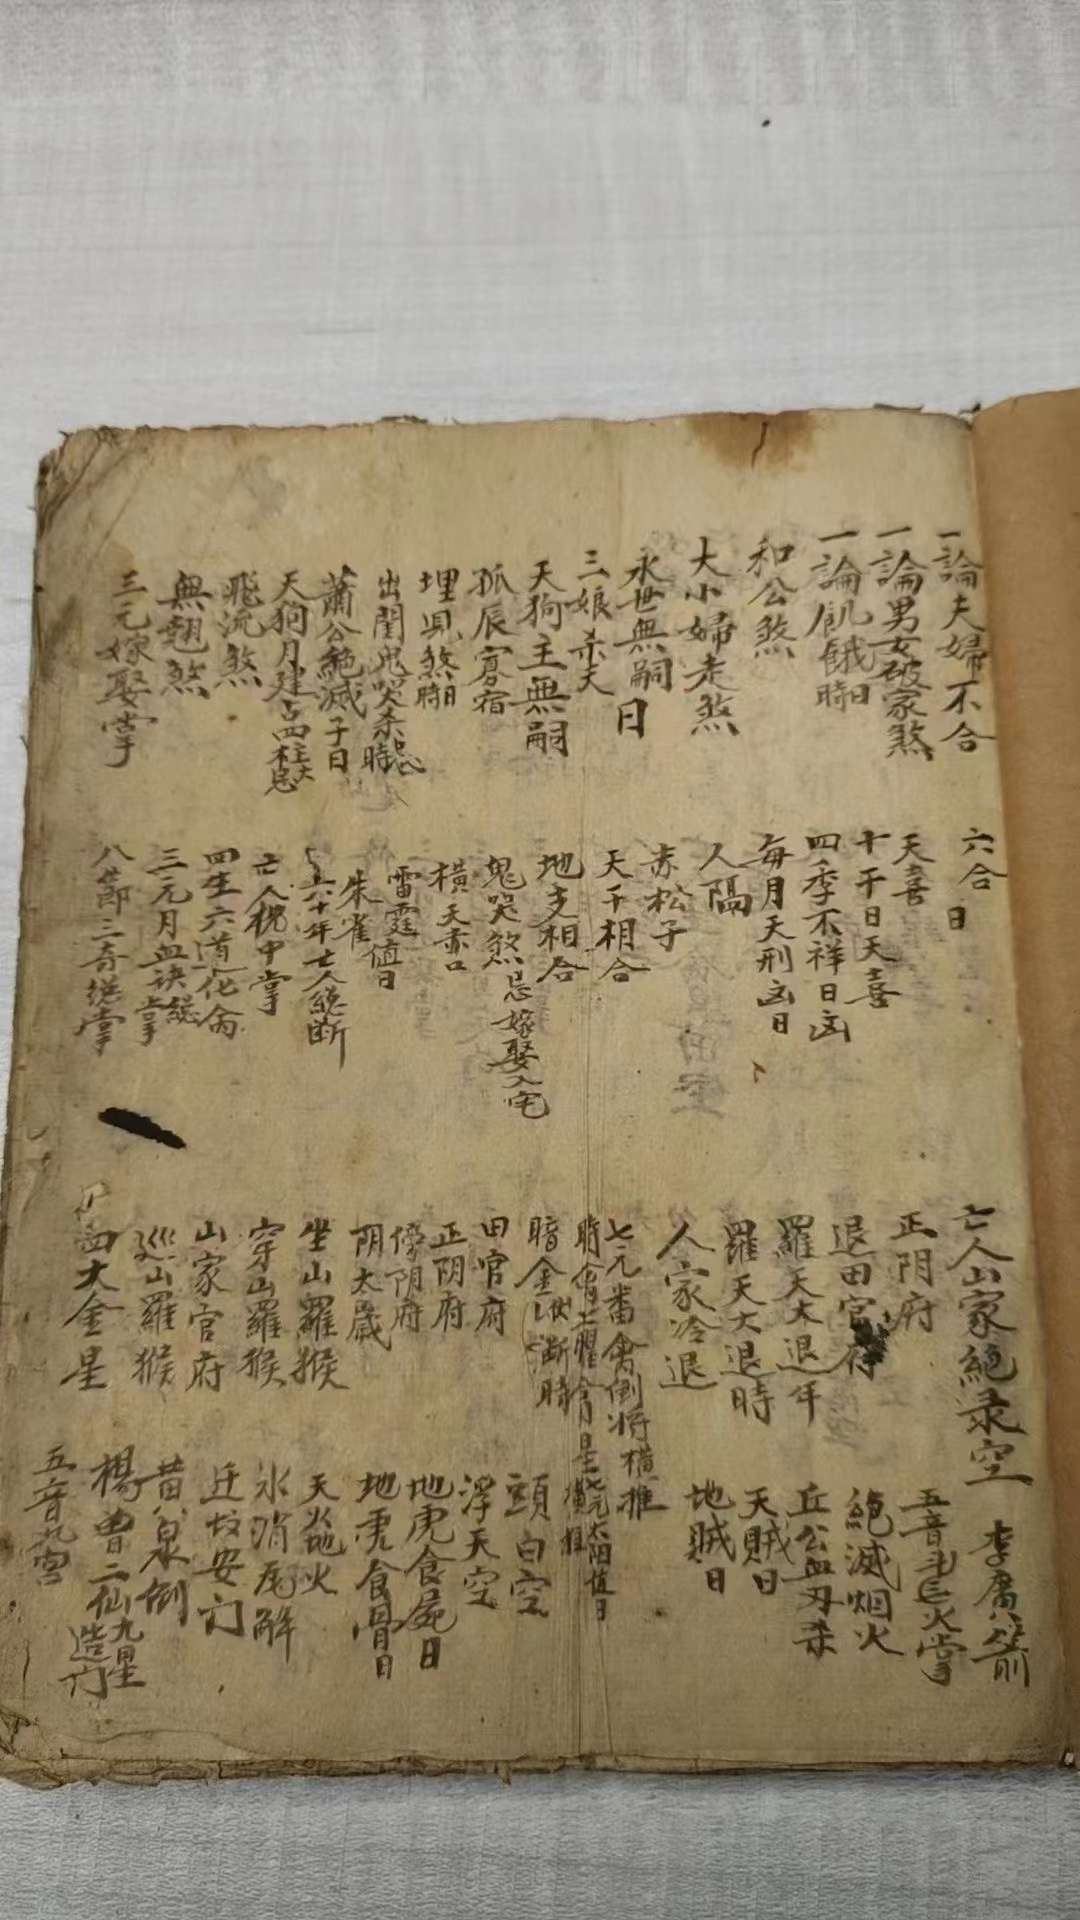 一論夫婦不合
一論男女破家煞
一論飢餓日時
和公煞
大小婦走煞
永世無嗣日
三娘杀夫
天狗主無嗣
孤辰寡宿
埋兒煞日時
出閨鬼哭杀忌時
蕭公絕滅子日
天狗月建占四柱大忌
飛流煞
無翹煞
三元嫁娶掌
六合日
天喜
十干日天喜
四季不祥日凶
每月天刑凶日
人隔
赤松子
天干相合
地支相合
鬼哭煞忌嫁娶入宅
橫天赤口
雷霆值日
朱雀
六十年亡人總断
亡人稅中掌
四生六道化禽
三元月血訣總掌
八節三奇總掌
亡人山家絕录空
正阴府
退田官符
羅天大退年
羅天大退時
人家冷退
七元番禽倒将橫推
時禽七曜會星七元太阳值日橫推
暗金伏断時
田官府
正阴府
傍阴府
阴太歲
坐山羅猴
穿山羅猴
山家官府
巡山羅猴
四大金星
李廣箭
五音毛火掌
絕滅烟火
丘公血刃杀
天賊日
地賊日
頭白空
浮天空
地虎食屍日
地虎食骨日
天嵗火
氷消瓦解
迁坟安门
黄泉倒
楊曾二仙九星造门
五音九宫